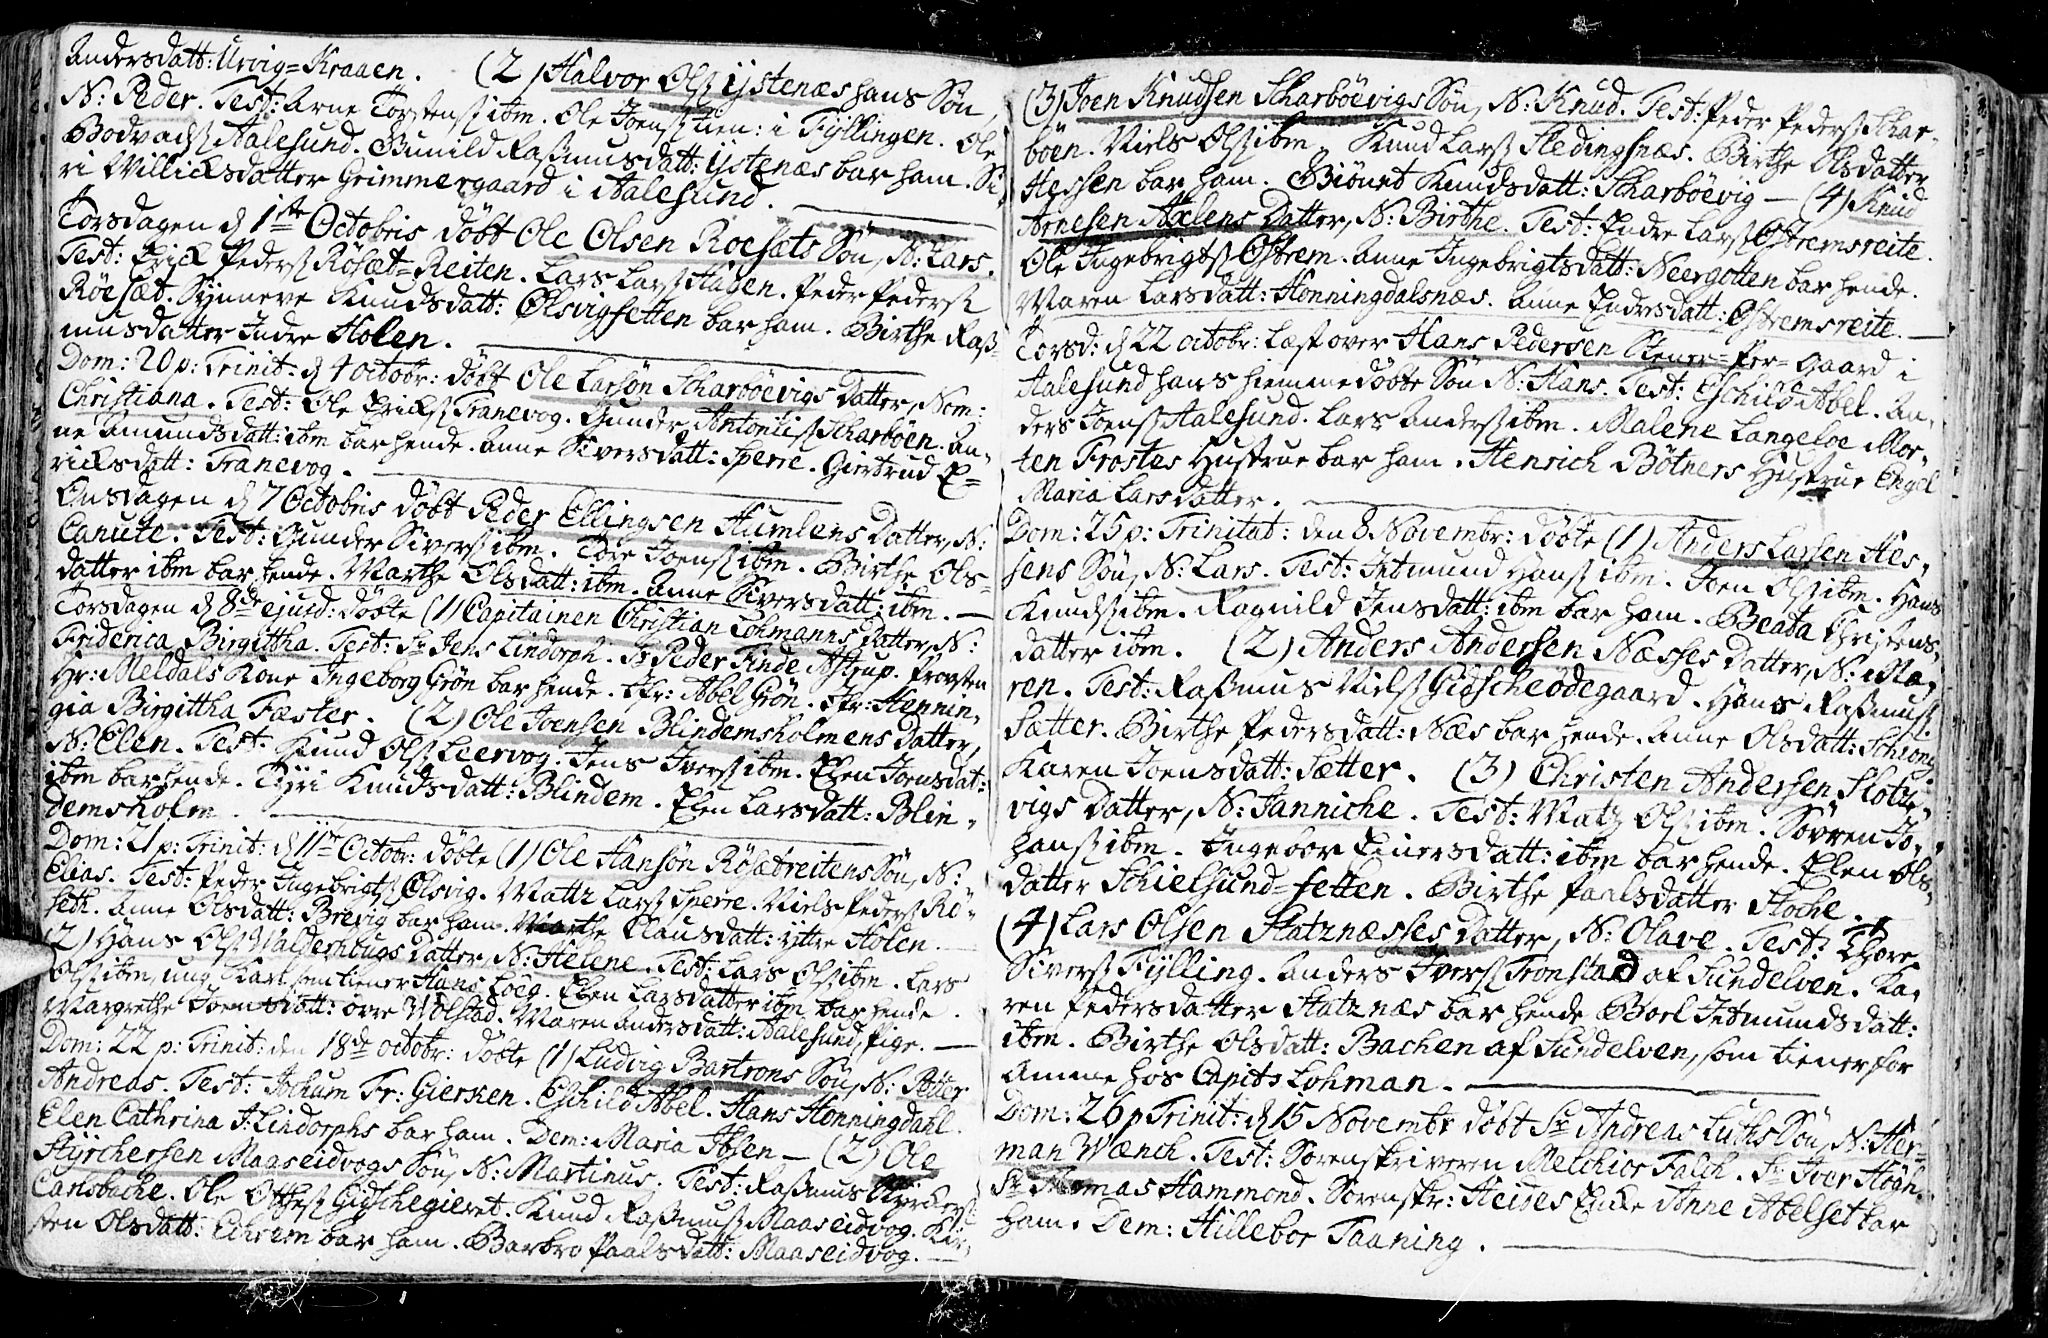 Andersdatt: Urvig=Kraaen. (2) Halvor Olsß ÿstenæs hans Søn,
N: Peder. Test: Arne Torstensß ibm. Ole Joensß tien: i Fÿllingen. Ole
Bodvachß Aalesund. Gunild Raßmusdatt: ÿstenæs bar ham. Si¬
ri Willicksdatter Grimmergaard i Aalesund.
Torsdagen d 1ste Octobris døbt Ole Olsen Roesæts Søn, N: Lars.
Test: Erick Pedersß Röfæt=Reiten. Lars Larsß Hagen. Peder Pedersß
Röesæt. Synneve Knudsdatt: Ølsvigsetten bar ham. Birthe Raß¬
musdatter Indre Holen.
Dom: 20 p: Trinit: d 4 octobr: døbt Ole Larsøn Scharböevigs Datter, Nom:
Christiana. Test: Ole Ericksß Tranevog. Gunder Antonisß Scharböen. An¬
ne Amundsdatt: ibm bar hende. Anne Siversdatt: Sperre. Giertrud E=
ricksdatt: Tranevog.
Onsdagen d 7 Octobris døbt Peder Ellingsen Humlens Datter, N:
Canute. Test: Gunder Siversß ibm. Tore Joensß ibm. Birthe Ols¬
datter ibm bar hende. Marthe Olsdatt: ibm. Anne Siversdatt: ibm.
Torsdagen d 8de ejusd: døbte (1) Capitainen Christian Lohmanns Datter, N:
Friderica Birgittha. Test: Sr Jens Lindorph. Sr Peder Finde Astrup. Provsten
Hr: Meldals Kone Ingeborg Grön bar hende. Jfr: Abel Grön. Jfr: Hennin¬
gia Birgittha Fæster. (2) Ole Joensen Blindemsholmens Datter,
N: Elen. Test: Knud Olsß Leervog. Jens Iversß ibm. Elen Joensdat:
ibm bar hende. Tÿri Knudsdatt: Blindem. Elen Larsdatt: Blin¬
demsholm.
Dom: 21 p: Trinit: d 11te Octobr: døbte (1) Ole Hansøn Rösætreitens Søn, N:
Elias. Test: Peder Ingebrigtsß Ølsvig. Mattz Larsß Sperre. Niels Pedersß Rö¬
seth. Anne Olsdatt: Brevig bar ham. Marthe Clausdatt: ÿttre Holen.
(2) Hans Olsß Walderhougs Datter, N: Helene. Test: Lars Olsß ibm. Lars
Olsß ibm, ung Karl som tiener Hans Löeg. Elen Larsdatter ibm bar hende.
Margrethe Joensdatt: övre Wolstad. Maren Andersdatt: Aalesund, Pige.
Dom: 22 p: Trinit: den 18de octobr: døbte (1) Ludvig Bartrons Søn, N: Peter
Andreas. Test: Jochum Fr: Giersen. Eschild Abel. Hans Honningdahl.
Elen Cathrina S. Lindorphs bar ham. Dem: Maria Ibsen — (2) Ole
Stÿrchersen Maaseidvogs Søn, N: Martinus. Test: Raßmus
Carlsbache. Ole Ottesß Gidschegieret. Knud Raßmusß Maaseidvog. Kir¬
sten Olsdatt: Echrem bar ham. Barbro Paalsdatt: Maaseidvog.
(3) Joen Knudsen Scharböevigs Søn, N: Knud. Test: Peder Pedersß Schar¬
böen. Niels Olsß ibm. Knud Larsß Fledingsnæs. Birthe Olsdatter
Hessen bar ham. Biönet Knudsdatt: Scharböevig — (4) Knud
Arnesen Axlens Datter, N: Birthe. Test: Endre Larsß Østremsreite.
Ole Ingebrigtsß Østrem. Anne Ingebrigtsdatt: Neergotten bar hende.
Maren Larsdatt: Honningdalsnæs. Anne Endresdatt: Østremsreite.
Torsd: d 22 octobr: læst over Hans Pedersen Stener=Per=Gaard i
Aalesund hans hiemmedøbte Søn N: Hans. Test: Eschild Abel. An¬
ders Joensß Aalesund. Lars Andersß ibm. Malene Langeloe Mor¬
ten Frostes Hustrue bar ham. Henrich Bötners Hustrue Engel
Maria Larsdatter.
Dom: 25 p: Trinitat: den 8 Novembr: døbte (1) Anders Larsen Hes¬
sens Søn, N: Lars. Test: Jetmund Hansß ibm. Joen Olsß ibm. Hans
Knudsß ibm. Ragnild Jensdatt: ibm bar ham. Beata Christens¬
datter ibm. (2) Anders Andersen Næsses Datter, N: Ma¬
ren. Test: Raßmus Nielsß Gidscheödegaard. Hans Raßmusß
Sætter. Birthe Pedersdatt: Næs bar hende. Anne Olsdatt: Schiong.
Karen Joensdatt: Sætter. (3) Christen Andersen Flotze¬
vigs Datter, N: Janniche. Test: Matz Olsß ibm. Sövren Jo¬
hansß ibm. Ingebor Einersdatt: ibm bar hende. Elen Ols¬
datter Schielsund=setten. Birthe Paalsdatter Floche.
(4) Lars Olsen Flatznæsses Datter, N: Olave. Test: Thore
Siversß Fÿlling. Anders Iversß Tronstad af Sundelven. Ka¬
ren Pedersdatter Flatznæs bar hende Boel Jetmundsdatt:
ibm. Birthe Olsdatt: Bachen af Sundelven, som tiener for
Amme hos Capit: Lohman.
Dom: 26 p Trinit: d 15 Novembr døbt Sr Andreas Luths Søn, N: Her¬
man Wænch. Test: Sorenskriveren Melchior Falch. Sr Iver Högh.
Sr Thomas Hammond. Sorenskr: Heides Encke Anne Abelset bar
ham. Dem: Hillebor Taaning.